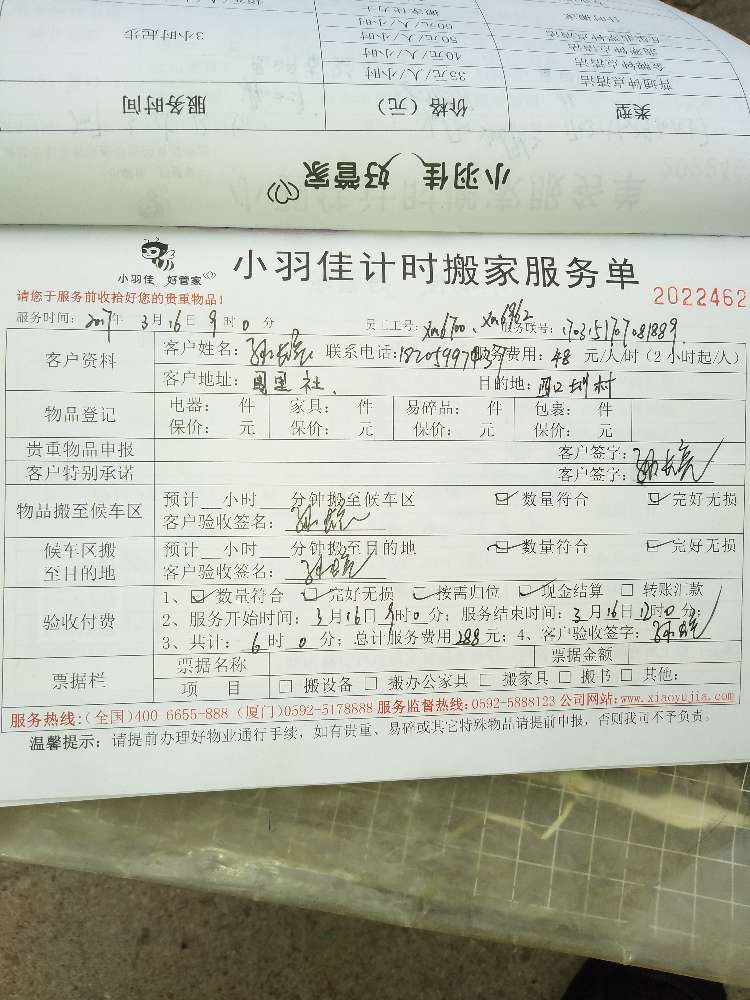 搬家体力工
60元/人/小时
50元/人/小时
3小时起步
金牌钟点清洁
40元/人/小时
普通钟点清洁
35元/人/小时
类型
价格（元）
服务时间
小羽佳 好管家
小羽佳 好管家
小羽佳计时搬家服务单
2022462
请您于服务前收拾好您的贵重物品！
服务时间：2017年 3月16日 9时0分 员工工号：xm6700、xm6962 服务联号：170315170708 1889
客户资料
客户姓名： 联系电话： 服务费用：48 元/人/时（2小时起/人）
客户地址： 目的地：
物品登记
电器： 件 家具： 件 易碎品： 件 包裹： 件
保价： 元 保价： 元 保价： 元 保价： 元
贵重物品申报
客户签字：
客户特别承诺
客户签字：
物品搬至候车区
预计__小时___分钟搬至候车区 ☑数量符合 ☑完好无损
客户验收签名：
候车区搬
至目的地
预计__小时___分钟搬至目的地 ☑数量符合 ☑完好无损
客户验收签名：
验收付费
1、☑数量符合 ☑完好无损 ☑按需归位 ☑现金结算 □ 转账汇款
2、服务开始时间：3月16日9时0分；服务结束时间：3月16日12时0分；
3、共计：6时0分；总计服务费用288元；4、客户验收签字：
票据栏
票据名称
票据金额
项 目
□ 搬设备 □ 搬办公家具 □ 搬家具 □ 搬书 □ 其他：
服务热线：（全国）400-6655-888（厦门）0592-5178888 服务监督热线：0592-5888123 公司网站：www.xiaoyujia.com
温馨提示：请提前办理好物业通行手续，如有贵重、易碎或其它特殊物品请提前申报，否则我司不予负责。